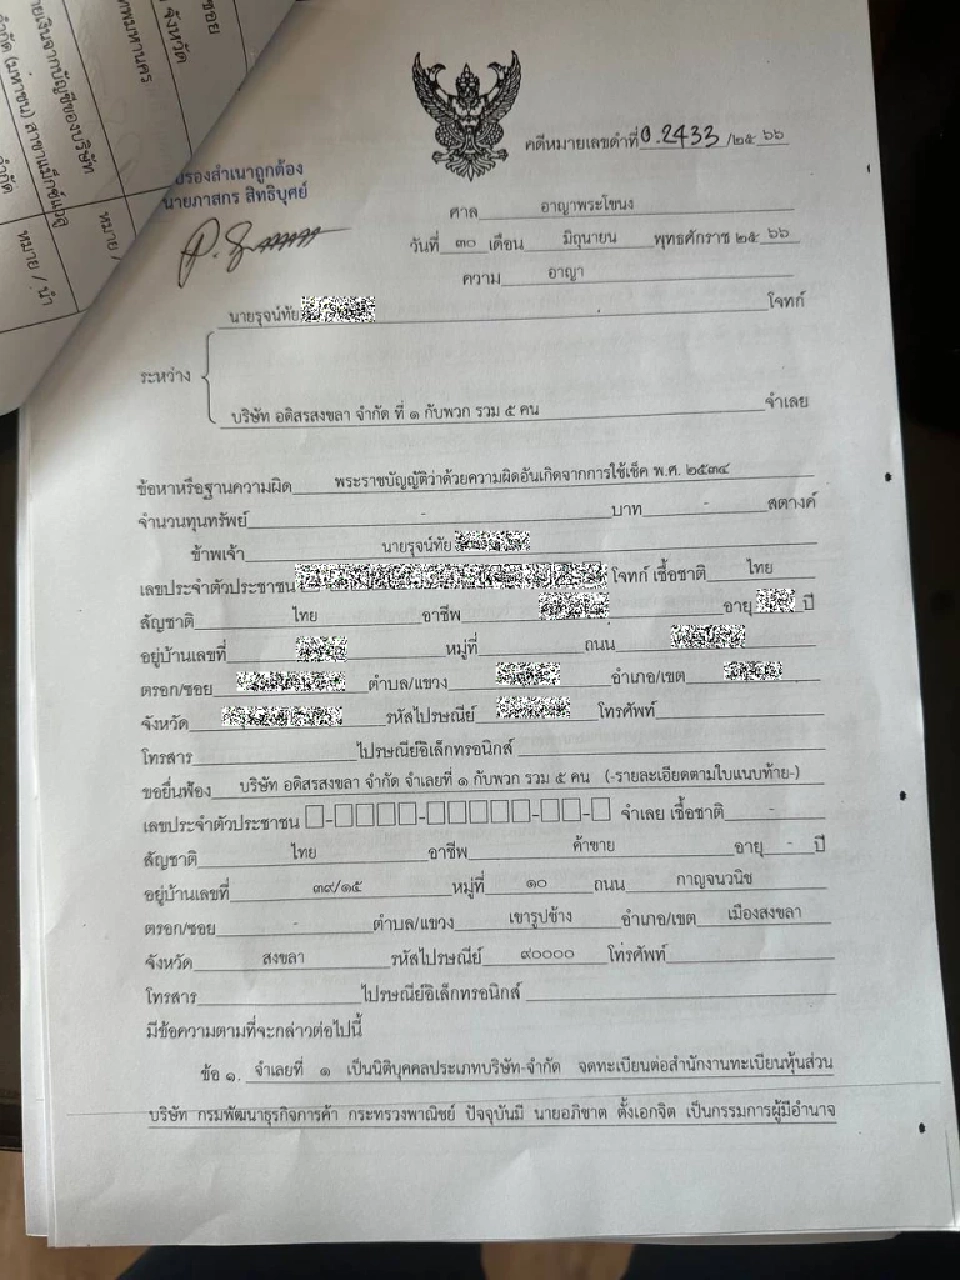 ซอย
จังหวัด
กรุงเทพมหานคร
จ่ายเงินจากบัญชีของบริษัท
จำกัด (มหาชน) สาขาแม็กซ์แวลู
จำกัด
หมาย /
หมาย / นำ
คดีหมายเลขดำที่ อ.2433 /๒๕ ๖๖
รับรองสำเนาถูกต้อง
นายภาสกร สิทธิบุศย์
ศาล อาญาพระโขนง
วันที่ ๓๐ เดือน มิถุนายน พุทธศักราช ๒๕ ๖๖
ความ อาญา
นายรุจน์ทัย โจทก์
ระหว่าง
บริษัท อดิสรสงขลา จำกัด ที่ ๑ กับพวก รวม ๕ คน จำเลย
ข้อหาหรือฐานความผิด พระราชบัญญัติว่าด้วยความผิดอันเกิดจากการใช้เช็ค พ.ศ. ๒๕๓๔
จำนวนทุนทรัพย์ - บาท - สตางค์
ข้าพเจ้า นายรุจน์ทัย
เลขประจำตัวประชาชน โจทก์ เชื้อชาติ ไทย
สัญชาติ ไทย อาชีพ อายุ ปี
อยู่บ้านเลขที่ หมู่ที่ ถนน
ตรอก/ซอย ตำบล/แขวง อำเภอ/เขต
จังหวัด รหัสไปรษณีย์ โทรศัพท์
โทรสาร ไปรษณีย์อิเล็กทรอนิกส์
ขอยื่นฟ้อง บริษัท อดิสรสงขลา จำกัด จำเลยที่ ๑ กับพวก รวม ๕ คน (-รายละเอียดตามใบแนบท้าย-)
เลขประจำตัวประชาชน จำเลย เชื้อชาติ -
สัญชาติ ไทย อาชีพ ค้าขาย อายุ - ปี
อยู่บ้านเลขที่ ๓๙/๑๕ หมู่ที่ ๑๐ ถนน กาญจนวนิช
ตรอก/ซอย - ตำบล/แขวง เขารูปช้าง อำเภอ/เขต เมืองสงขลา
จังหวัด สงขลา รหัสไปรษณีย์ ๙๐๐๐๐ โทรศัพท์
โทรสาร ไปรษณีย์อิเล็กทรอนิกส์
มีข้อความตามที่จะกล่าวต่อไปนี้
ข้อ ๑. จำเลยที่ ๑ เป็นนิติบุคคลประเภทบริษัท-จำกัด จดทะเบียนต่อสำนักงานทะเบียนหุ้นส่วน
บริษัท กรมพัฒนาธุรกิจการค้า กระทรวงพาณิชย์ ปัจจุบันมี นายอภิชาต ตั้งเอกจิต เป็นกรรมการผู้มีอำนาจ